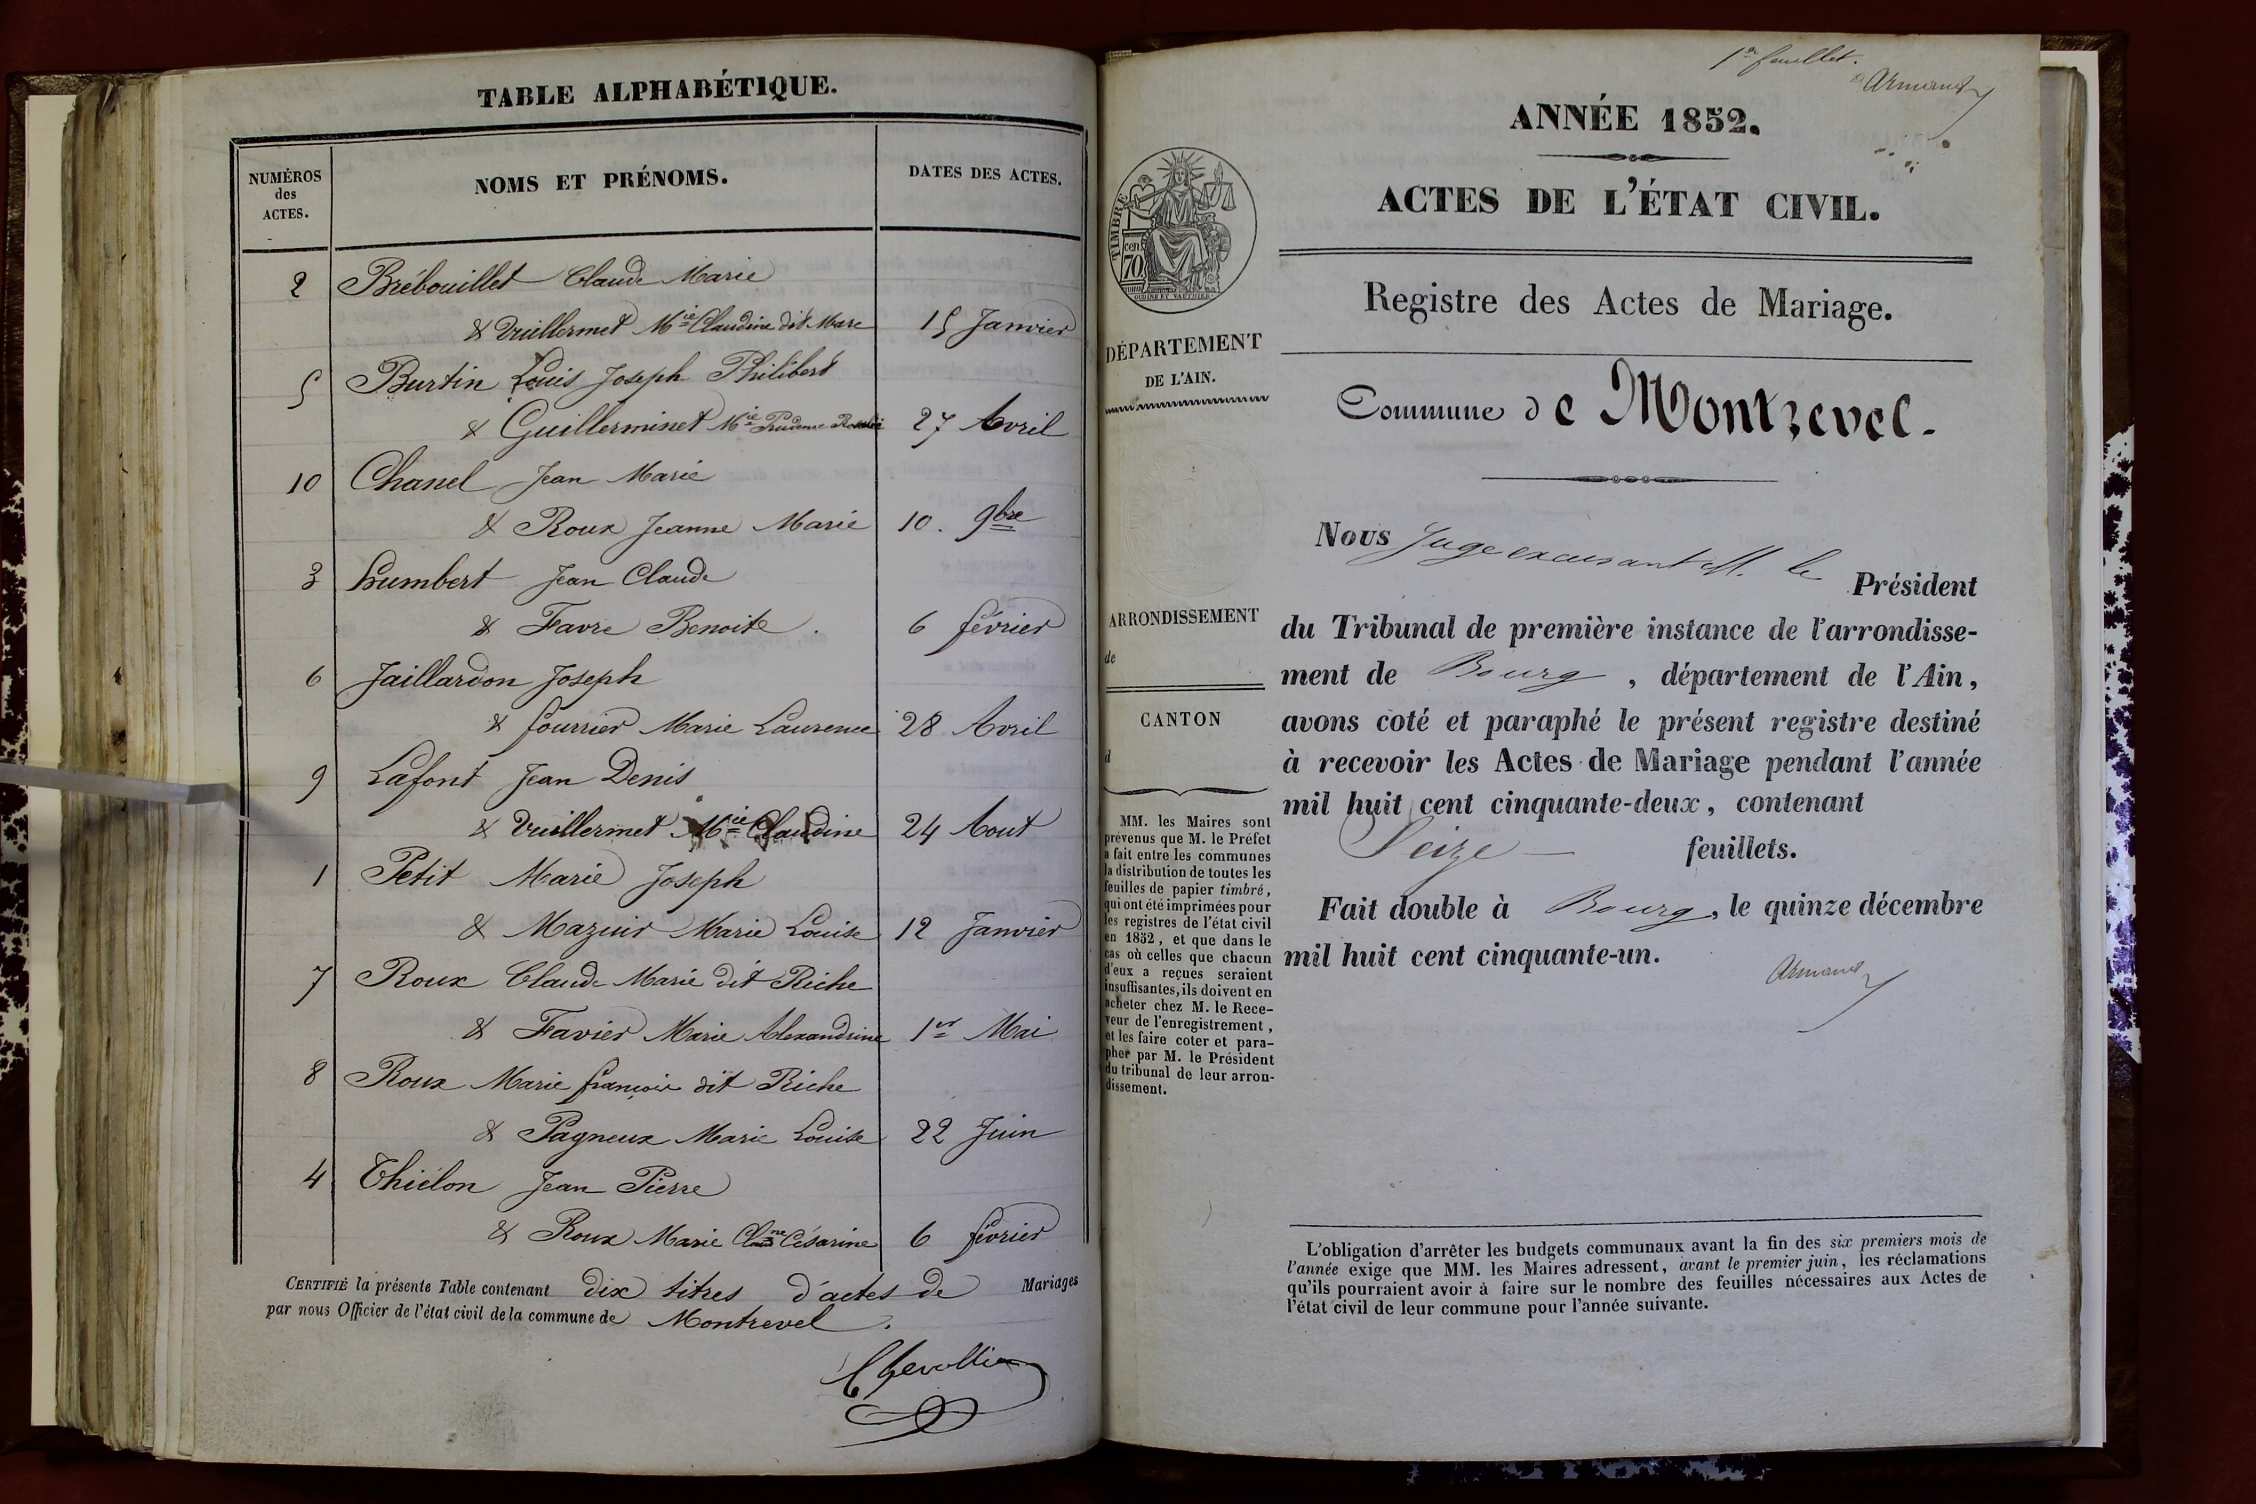 TABLE ALPHABÉTIQUE.
NUMÉROS
des
ACTES.
NOMS ET PRÉNOMS.
DATES DES ACTES.
2 Brébouillet Claude Marie
& Vuillermet Mie Claudine dit Marc 15 Janvier
5 Burtin Louis Joseph Philibert
& Guillerminet Mie Prudence 27 Avril
10 Chanel Jean Marie
& Roux Jeanne Marie 10. 9bre
3 humbert Jean Claude
& Favre Benoite. 6 février
6 Jaillardon Joseph
& fourrier Marie Laurence 28 Avril
9 Lafont Jean Denis
& Vuillermet Mie Claudine 24 Aout
1 Petit Marie Joseph
& Mazuir Marie Louise 12 Janvier
7 Roux Claude Marie dit Riche
& Favier Marie Alexandrine 1er Mai
8 Roux Marie françois dit Riche
& Pagneux Marie Louise 22 Juin
4 Thiélon Jean Pierre
& Roux Marie Clne Césarine 6 février
CERTIFIÉ la présente Table contenant dix titres d'actes de Mariages
par nous Officier de l'état civil de la commune de Montrevel.
Chevallier
1er feuillet.
Armand
ANNÉE 1852.
ACTES DE L'ÉTAT CIVIL.
Registre des Actes de Mariage.
Commune de Montrevel.
TIMBRE
cen
70
OUDINÉ ET VAUTHIER
DÉPARTEMENT
DE L'AIN.
ARRONDISSEMENT
de
CANTON
d
MM. les Maires sont
prévenus que M. le Préfet
a fait entre les communes
la distribution de toutes les
feuilles de papier timbré,
qui ont été imprimées pour
les registres de l'état civil
en 1852, et que dans le
cas où celles que chacun
d'eux a reçues seraient
insuffisantes, ils doivent en
acheter chez M. le Rece-
veur de l'enregistrement,
et les faire coter et para-
pher par M. le Président
du tribunal de leur arron-
dissement.
Nous Juge excusant M. le Président
du Tribunal de première instance de l'arrondisse-
ment de Bourg, département de l'Ain,
avons coté et paraphé le présent registre destiné
à recevoir les Actes de Mariage pendant l'année
mil huit cent cinquante-deux, contenant
Seize — feuillets.
Fait double à Bourg, le quinze décembre
mil huit cent cinquante-un.
Armand
L'obligation d'arrêter les budgets communaux avant la fin des six premiers mois de
l'année exige que MM. les Maires adressent, avant le premier juin, les réclamations
qu'ils pourraient avoir à faire sur le nombre des feuilles nécessaires aux Actes de
l'état civil de leur commune pour l'année suivante.